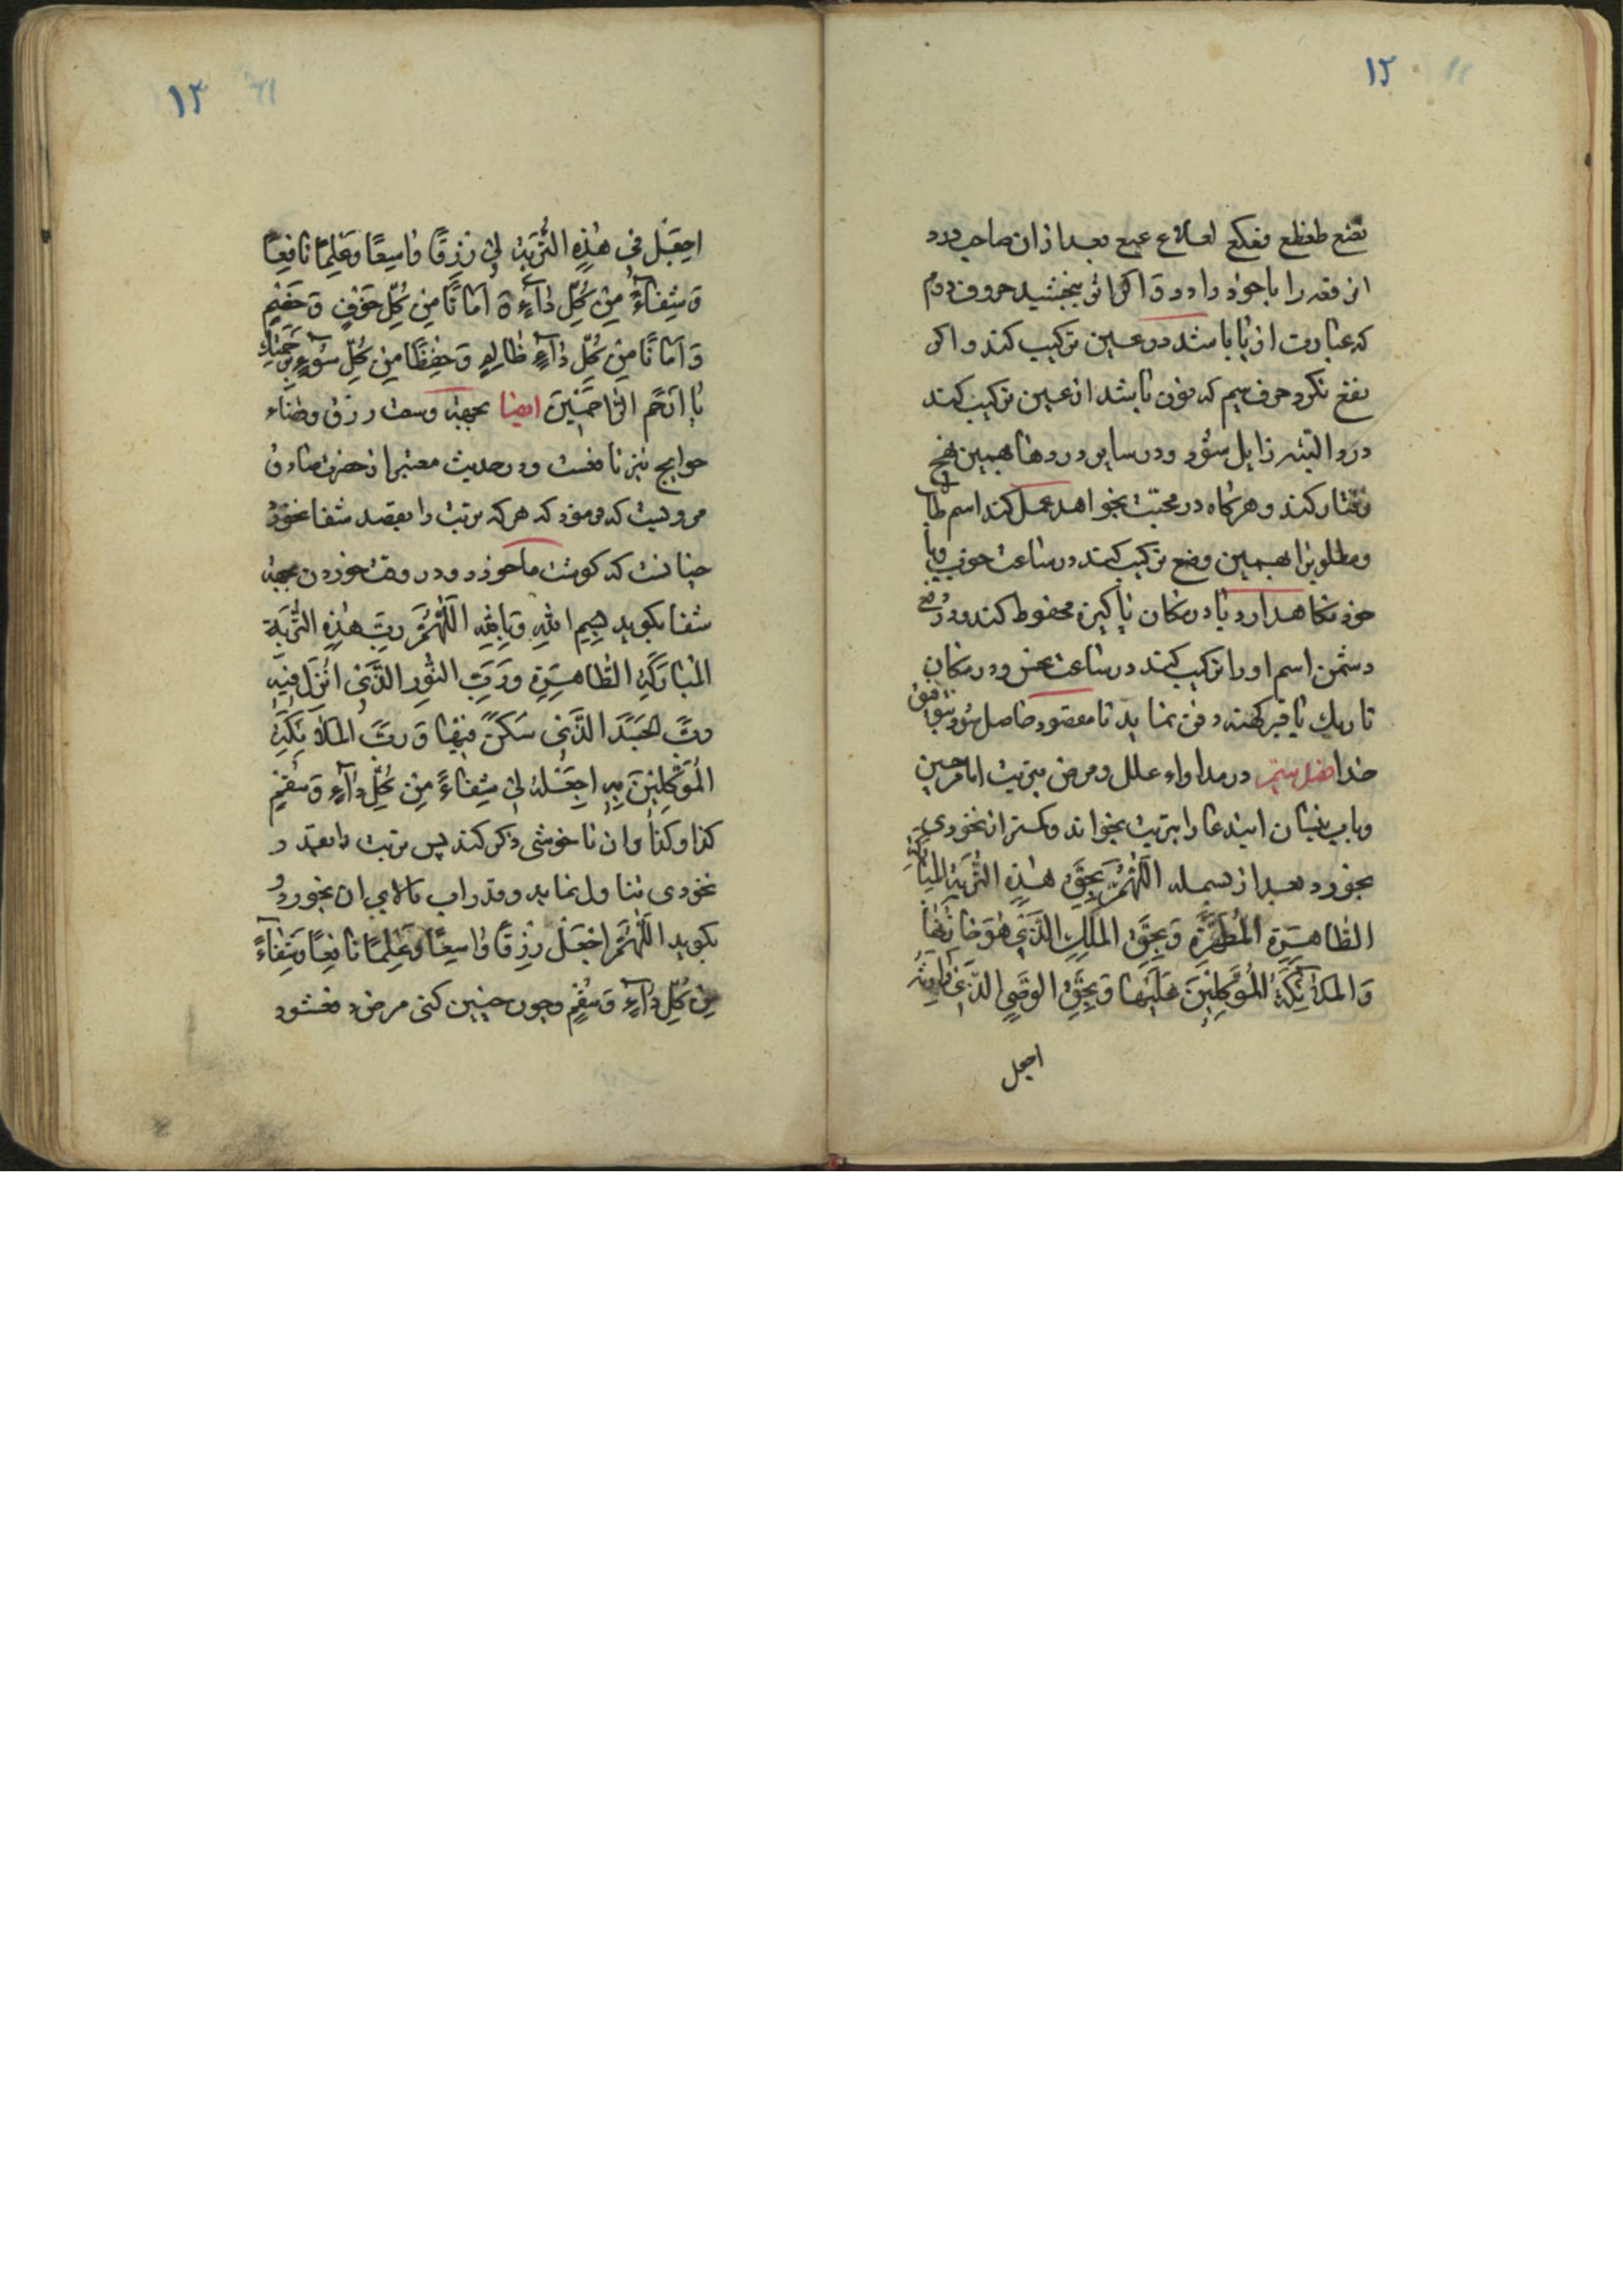 ۱۲
نضع طفظع فعكع لعلاع عيع بعد از ان صاحب درد
این رقعه را با خود دارد و اکر اثر نبخشید حروف دوم
که عبارت از با باشد در عین ترکیب کند و اکر
نفع نکرد حرف سیم که نون باشد از عین ترکیب کند
درد البته زایل شود و در سایر دردها همین نهج
رفتار کند و هرکاه در محبت بخواهد عمل کند اسم طالب
و مطلوبرا بهمین وضع ترکیب کند در ساعت خوب و با
خود نکاهدارد یا در مکان پاکیزه محفوظ کند و در دفع
دشمن اسم او را ترکیب کند در ساعت نحس و در مکان
تاریك یا قبر کهنه دفن نماید تا مقصود حاصل شود بتوفیق
خدا فصل ستم در مداواء علل و مرض بتربت امام حسین
و باب نیسان ایندعا را بتربت بخواند و کمتر از نخودی
بخورد بعد از بسمله اَللّٰهُمَّ بِحَقِّ هٰذِهِ التُّرْبَةِ المُبارَكَةِ
الطّاهِرَةِ المُطَهَّرَةِ وَ بِحَقِّ المَلَكِ الَّذی هُوَ خازِنُها
وَ المَلائِكَةِ المُوَكَّلينَ عَلَيْها وَ بِحَقِّ الوَصِيِّ الَّذی
اجعل
۱۳
اجعَل فی هٰذِهِ التُّربَةِ لی رِزقًا واسِعًا وَ عِلمًا نافِعًا
وَ شِفاءً مِن كُلِّ داءٍ وَ اَمانًا مِن كُلِّ خَوفٍ وَ
وَ اَمانًا مِن كُلِّ داءٍ وَ حِفظًا مِن كُلِّ سُوءٍ بِرَحمَتِكَ
یا اَرحَمَ الرّاحِمینَ ایضا بجهة وسعت رزق و قضاء
حوایج نیز نافعست و در حدیث معتبر از حضرت صادق
مرویست که فرمود که هر که تربت را بقصد شفا نخورد
چنانست که کوشت ما خورد و در وقت خوردن بجهة
شفا بکوید بِسمِ اللّٰهِ وَ بِاللّٰهِ اَللّٰهُمَّ رَبَّ هٰذِهِ التُّربَةِ
المُبارَكَةِ الطّاهِرَةِ وَ رَبَّ النُّورِ الَّذی اُنزِلَ فیهِ
وَ رَبَّ الجَسَدِ الَّذی سَكَنَ فیها وَ رَبَّ المَلائِكَةِ
المُوَكَّلینَ بِهِ اجعَلهُ لی شِفاءً مِن كُلِّ داءٍ وَ سُقمٍ
کذا و کذا و ان ناخوشی ذکر کند پس تربت را بقدر
نخودی تناول نماید و قدر اب بالای ان بخورد و
بکوید اَللّٰهُمَّ اجعَل رِزقًا واسِعًا وَ عِلمًا نافِعًا وَ شِفاءً
مِن كُلِّ داءٍ وَ سُقمٍ و چون چنین کنی مرض دفع شود